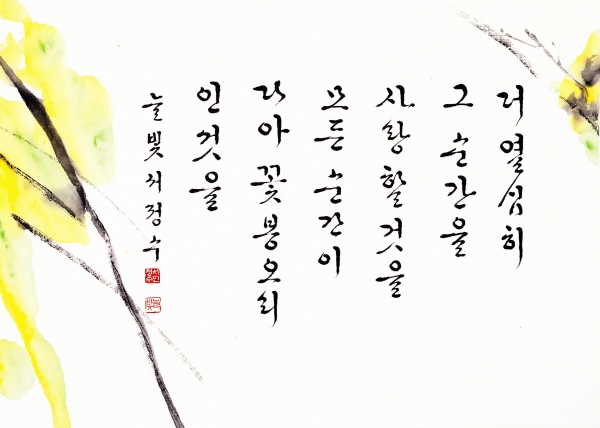 더 열심히
그 순간을
사랑할 것을
모든 순간이
다아 꽃봉오리
인 것을
늘빛 서정수